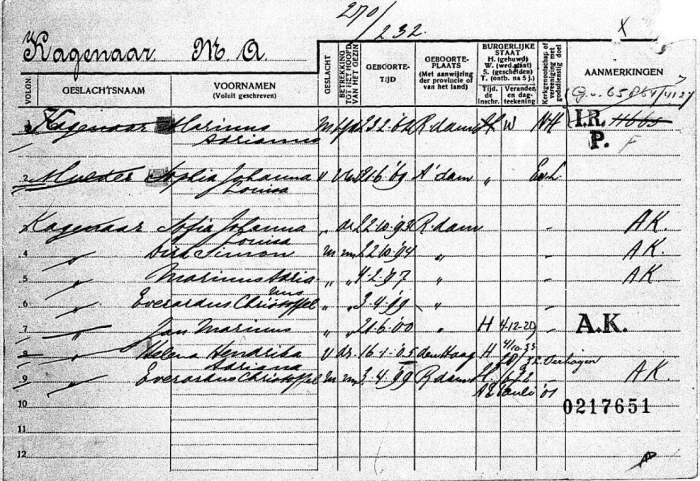 270/232.
X
Kagenaar M. A.
VOLGN.
GESLACHTSNAAM
VOORNAMEN
(Voluit geschreven)
GESLACHT
BETREKKING TOT HET HOOFD VAN HET GEZIN
GEBOORTE-TIJD
GEBOORTE-PLAATS
(Met aanwijzing der provincie of van het land)
BURGERLIJKE STAAT
H. (gehuwd)
W. (wed.staat)
S. (gescheiden)
T. (ontb. na 5 j.)
Tijd. de inschr.
Verander. en dag-teekening
Kerkgenootschap of vereeniging met godsdienstig doel
AANMERKINGEN
1 Kagenaar Marinus Adrianus m hfd 23.2.62 R'dam H W NH I.R. P. F
2 Mulder Sophia Johanna Louisa v vr 21.6.69 A'dam " Ev.L
3 Kagenaar Sofia Johanna Louisa " dr 22.10.93 R.dam " A.K.
4 " Dirk Simon m zn 22.10.94 " " A.K.
5 " Marinus Adrianus " " 9.2.97 " " A.K.
6 " Everardus Christoffel " " 3.4.99 " "
7 " Jan Marinus " " 21.6.00 " H 4/12-29 " A.K.
8 " Helena Hendrika Adriana v dr. 16.1.05 den Haag H 4/10-33 J.C. Verhagen
9 " Everardus Christoffel m zn 3.4.99 R.dam " A.K.
10
11
12
0217651